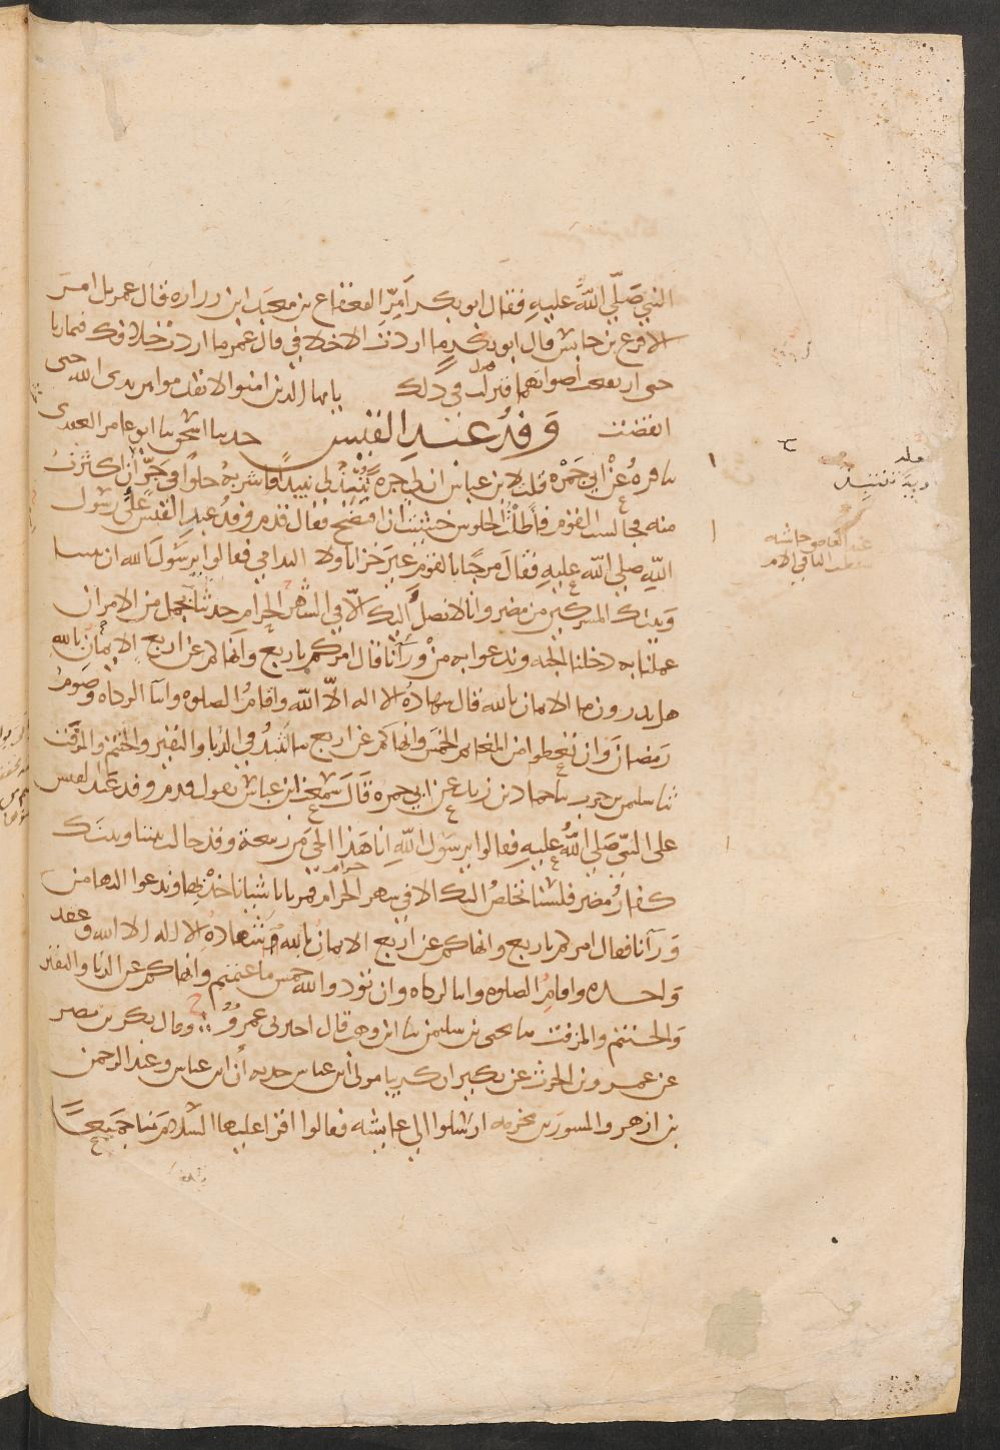 النبي صَلّي اللّهُ عليهِ فقال ابو بكر اَمِرِّ القعقاع بن معبَد ابن زراره قال عمر بل امِرَ
الاقرع بن حابس قال ابو بكر ما اردتَ الا خلافي قال عمر ما اردتُ خلافك فتماريا
حتى ارتفعت اصواتهما فنزلت في ذلك يايها الذين امنوا لا تقدموا بين يدي الله حتى
انقضت وَفدُ عَبدِ القيس حدثنا اسحق انا ابو عامر العقدي
نا قره عَنْ ابي جَمْرَه قلت لابن عباس ان لي جره يُنْتَبَذُ لي نبيذًا فاشربهُ حلوًا في جَرٍّ ان اكثرتُ
منه فجالست القوم فأَطلْتُ الجلوس خشيت ان افتضح فقال قدم وفدُ عبدِ القيس علي رسول
اللّهِ صلي اللّه عليهِ فقالَ مرحبًا بالقوم غيرَ خزايا ولا الندامي فقالوا يرسُولَ الله ان بيننا
وَبينك المشركين من مضر وانا لا نصلُ اليك الّا في الشهر الحرام حدثنا بجمل من الامر ان
عملنا به دخلنا الجنه وندعوا به منْ وَرَآنا قال امركم باربع وانهاكم عن اربع الايمانِ بالله
هل تدرون ما الايمان بالله قال شهادهُ لا اله الّا اللّه واقامُ الصلوه وايتآ الزكاه وصومُ
رَمضانَ وان تعطوا من المغانم الخمسَ وانهاكم عن اربع ما انتُبذَ في الدبا والنقير والحنتم والمزفت
ثنا سليمن بن حرب نا حماد بن زيد عن ابي جمره قَالَ سمعت ابن عباس يقول قدم وفد عبد القيس
على النبيّ صَلي اللّهُ عليهِ فقالوا يرسُول اللّهِ انا هَذا الحيّ من ربيعة وقد حالت بيننا وبينَك
كفارُ مُضر فلسْنا نخلصُ اليك الا في شهر الحرام فمرنا باشيا ناخذُ بها وندعوا اليها من
وَرآنا فقال امركم باربع وانهاكم عن اربع الايمان بالله وشَهادهُ لا اله الا الله وعقد
وَاحده واقامُ الصلوه وايتا الزكاه وان تؤدوا لله خمس ما غنمتم وانهاكم عن الدبا والنقير
وَالحنتم والمزفت نا يحيى بن سليمن نا ابن وهب قال اخبرني عمروٌ وقال بكر بن مضر
عن عمرو بن الحرث عن بكير ان كريبا مولى ابن عباس حدثه أن ابن عباس وعبد الرحمن
بن ازهر والمسورَ بن مخرمه ارسَلوا الي عايشه فقالوا اقرا عليها السّلام منا جميعًا